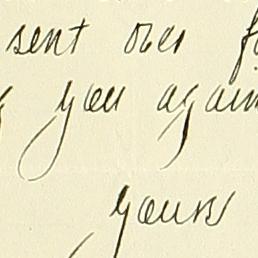 sent over
you again
yours